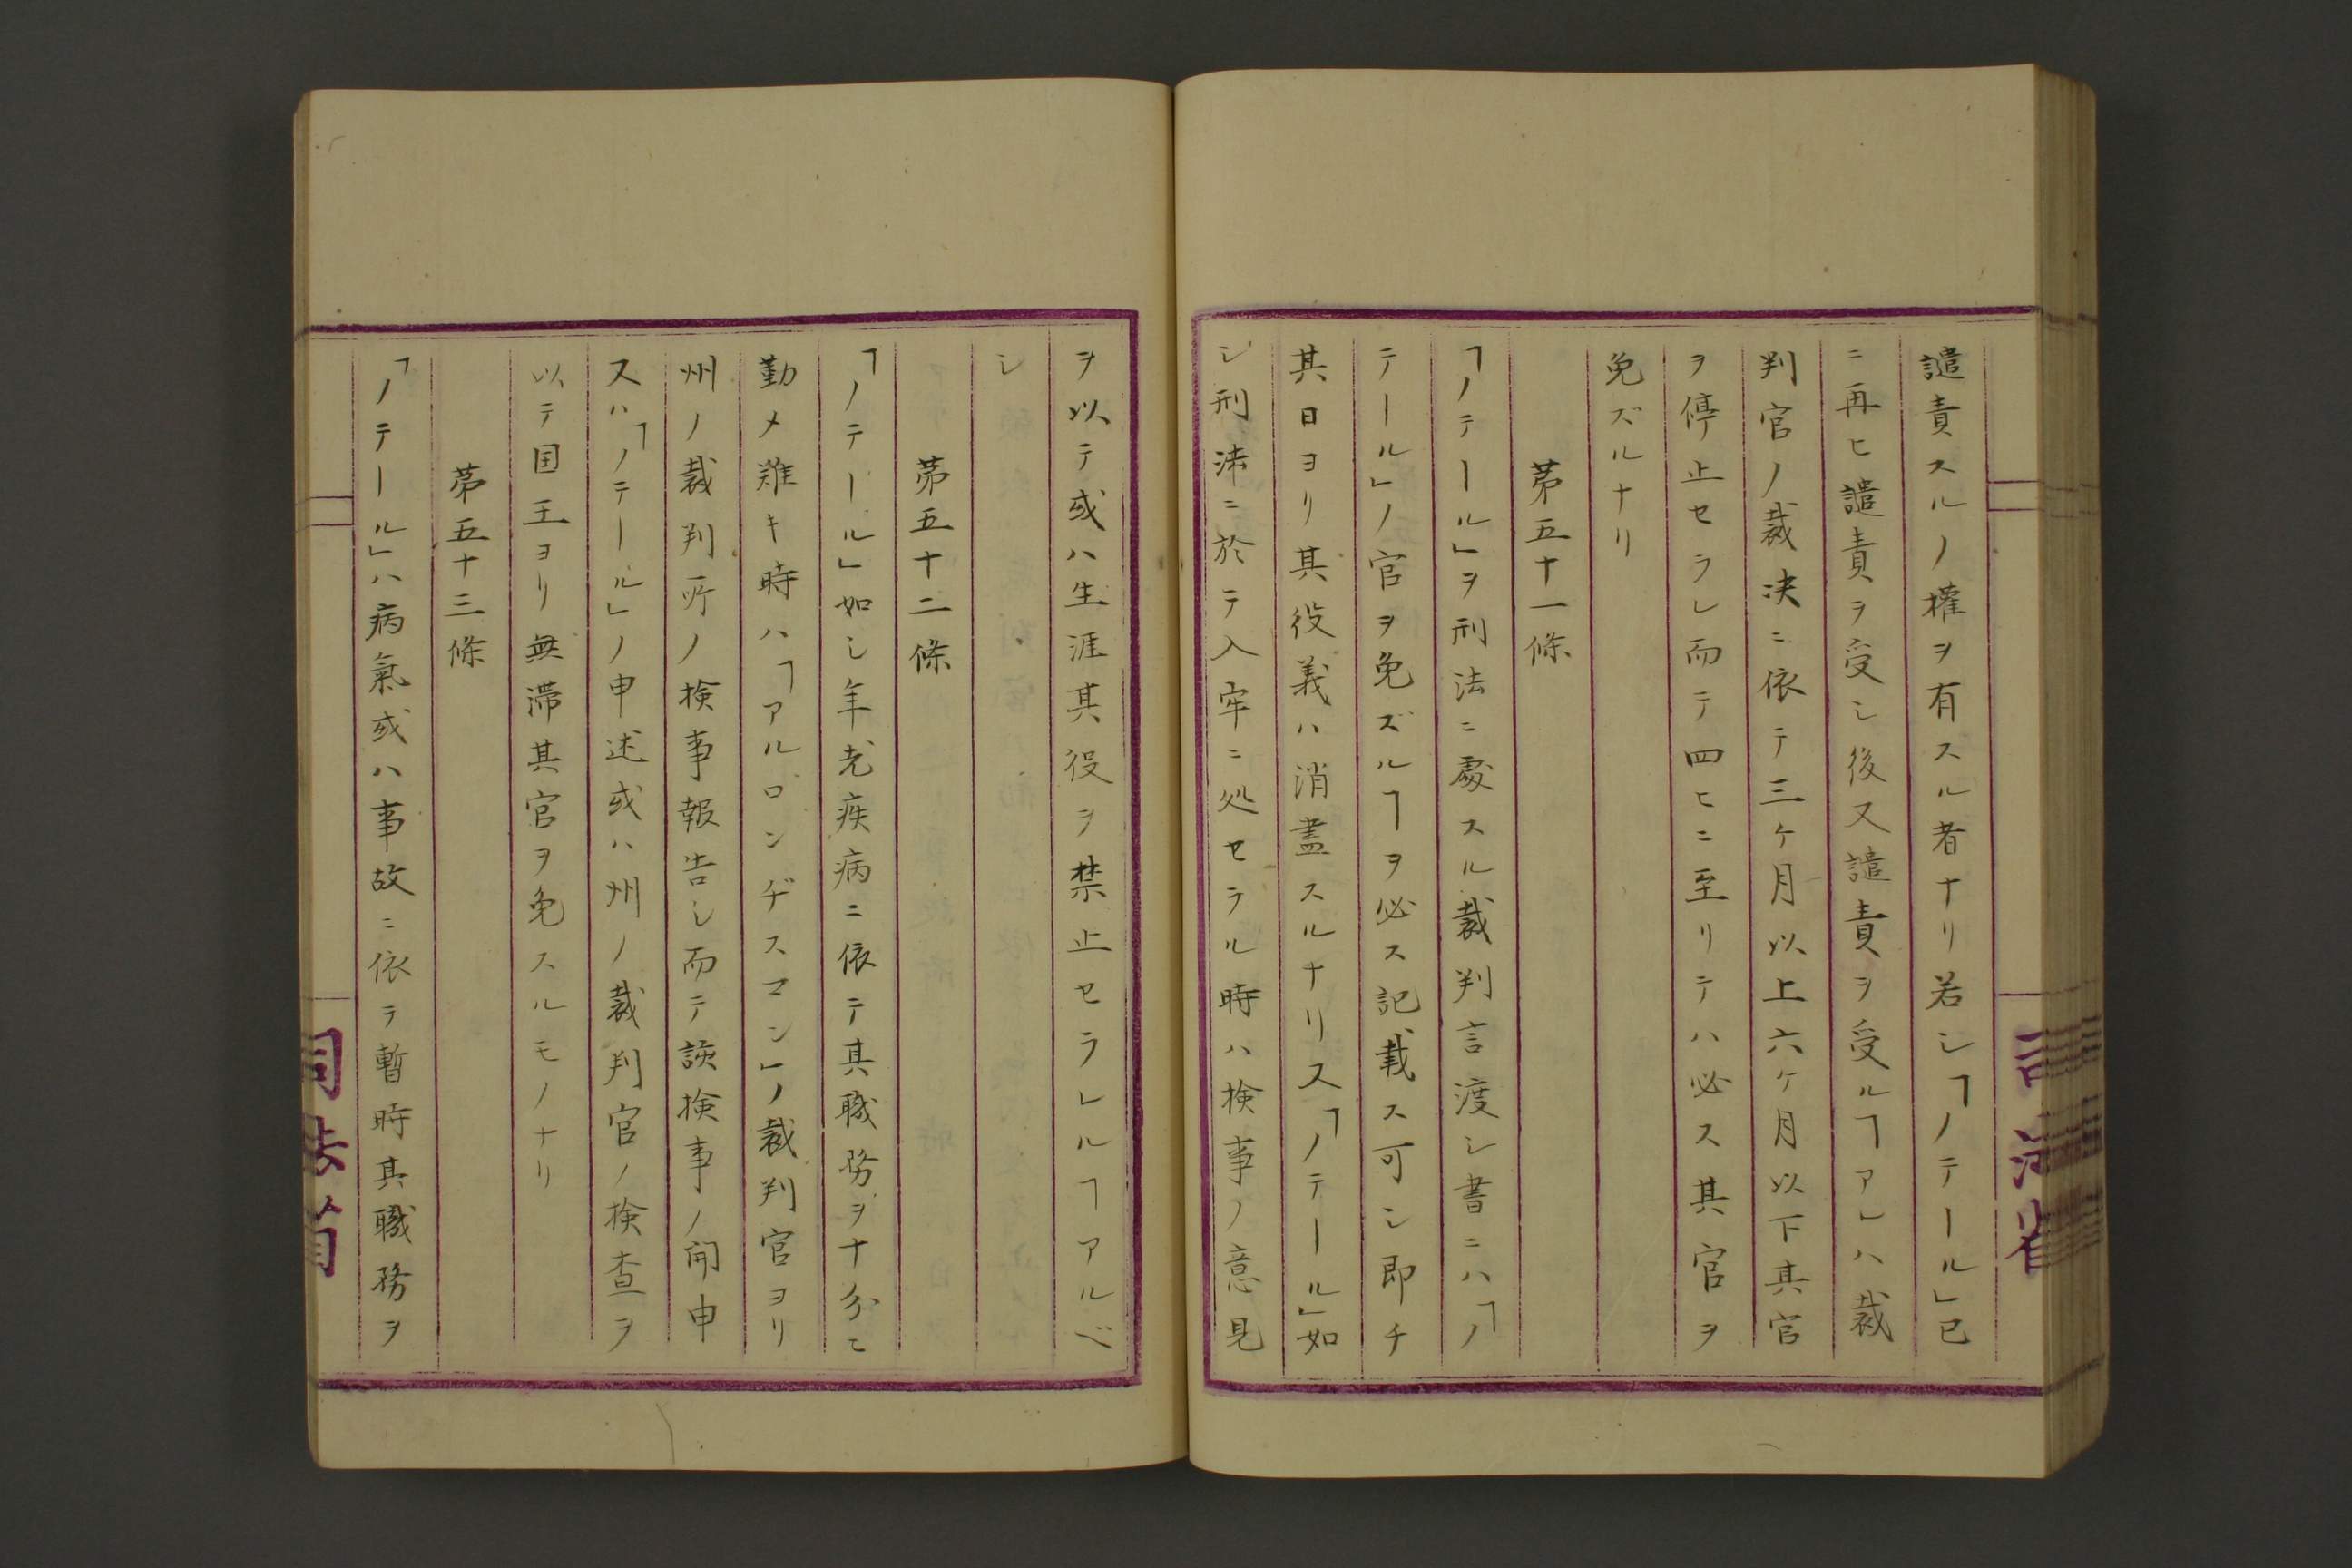 譴責スルノ權ヲ有スル者ナリ若シ「ノテール」已
ニ再ヒ譴責ヲ受シ後又譴責ヲ受ルヿアレハ裁
判官ノ裁决ニ依テ三ケ月以上六ケ月以下其官
ヲ停止セラレ而テ四ヒニ至リテハ必ス其官ヲ
免ズルナリ
第五十一條
「ノテール」ヲ刑法ニ處スル裁判言渡シ書ニハ「ノ
テール」ノ官ヲ免ズルヿヲ必ス記載ス可シ即チ
其日ヨリ其役義ハ消盡スルナリ又「ノテール」如
シ刑法ニ於テ入牢ニ処セラル時ハ検事ノ意見
ヲ以テ或ハ生涯其役ヲ禁止セラレルヿアルベ
シ
第五十二條
「ノテール」如シ年老疾病ニ依テ其職務ヲ十分ニ
勤メ難キ時ハ「アルロンヂスマン」ノ裁判官ヨリ
州ノ裁判所ノ検事報告シ而テ該検事ノ開申
又ハ「ノテール」ノ申述或ハ州ノ裁判官ノ検査ヲ
以テ国王ヨリ無滞其官ヲ免スルモノナリ
第五十三條
「ノテール」ハ病氣或ハ事故ニ依テ暫時其職務ヲ
司法省
司法省